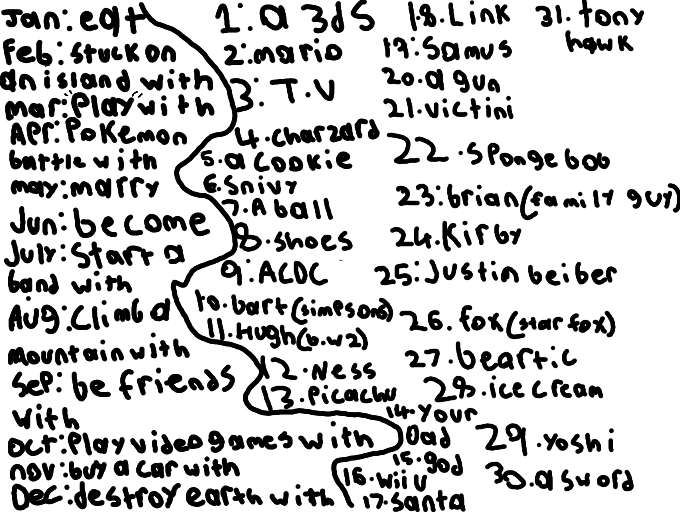 Jan: eat
Feb: stuck on
an island with
mar: "Play" with
APr: PoKemon
battle with
may: marry
Jun: become
July: Start a
band with
AUg: Climb a
mountain with
SeP: be friends
with
oct: Play video games with
nov: buy a car with
Dec: destroy earth with
1: a 3dS
2: mario
3: T.V
4. charzard
5. a cookie
6. Snivy
7. A ball
8. shoes
9: ACDC
10. bart (simpsons)
11. Hugh (b.w2)
12. Ness
13. Picachu
14. Your
Dad
15. god
16. wii u
17. Santa
18. Link
19. Samus
20. a gun
21. victini
22. SPongebob
23: brian (family guy)
24. Kirby
25: Justin beiber
26. fox (star fox)
27. beartic
28. ice cream
29. yoshi
30. a sword
31. tony
hawk